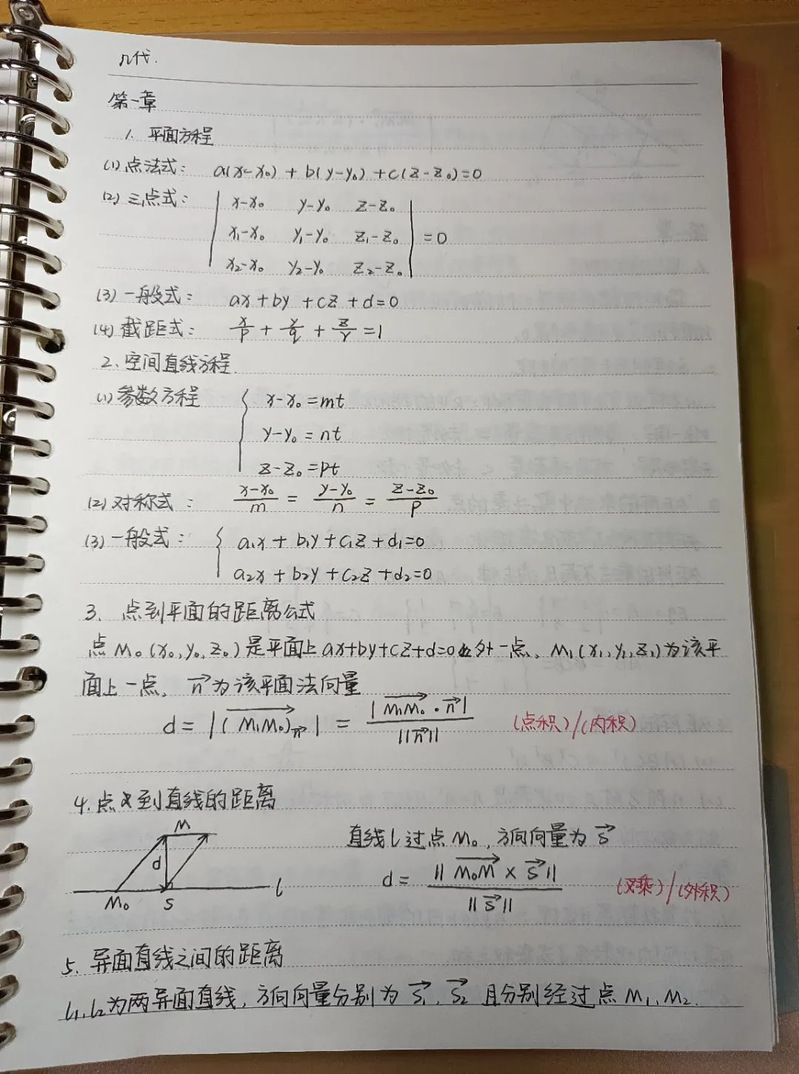 几代.
第一章
1. 平面方程
(1) 点法式: a(x-x₀) + b(y-y₀) + c(z-z₀)=0
(2) 三点式: | x-x₀ y-y₀ z-z₀ |
| x₁-x₀ y₁-y₀ z₁-z₀ | =0
| x₂-x₀ y₂-y₀ z₂-z₀ |
(3) 一般式: ax+by+cz+d=0
(4) 截距式: x/p + y/q + z/r =1
2. 空间直线方程
(1) 参数方程 { x-x₀=mt
y-y₀=nt
z-z₀=pt
(2) 对称式: (x-x₀)/m = (y-y₀)/n = (z-z₀)/p
(3) 一般式: { a₁x+b₁y+c₁z+d₁=0
a₂x+b₂y+c₂z+d₂=0
3. 点到平面的距离公式
点M₀(x₀,y₀,z₀)是平面上ax+by+cz+d=0外一点, M₁(x₁,y₁,z₁)为该平
面上一点, n⃗为该平面法向量
d= |(M₁M₀→)n⃗| = |M₁M₀→·n⃗| / ||n⃗|| (点积)/(内积)
4. 点到直线的距离
M
直线l过点M₀, 方向向量为s⃗
d
d= ||M₀M→×s⃗|| / ||s⃗|| (叉乘)/(外积)
M₀ S l
5. 异面直线之间的距离
l₁,l₂为两异面直线, 方向向量分别为s⃗₁, s⃗₂ 且分别经过点M₁、M₂.